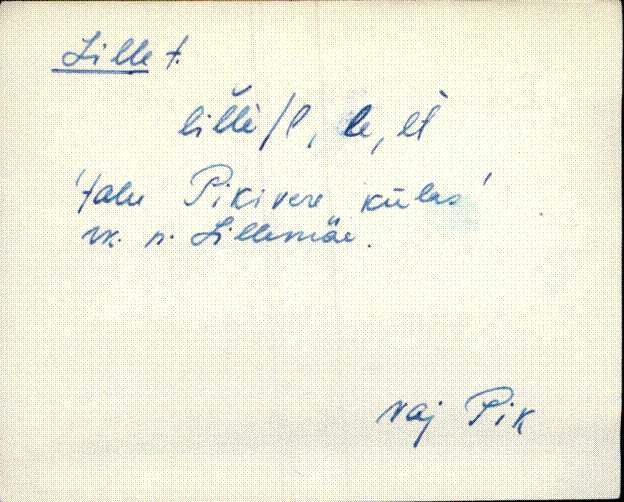 Lille t.
lillè/l, le, èt
'talu Pikivere külas'
rk. n. Lillemäe.
Vaj Pik